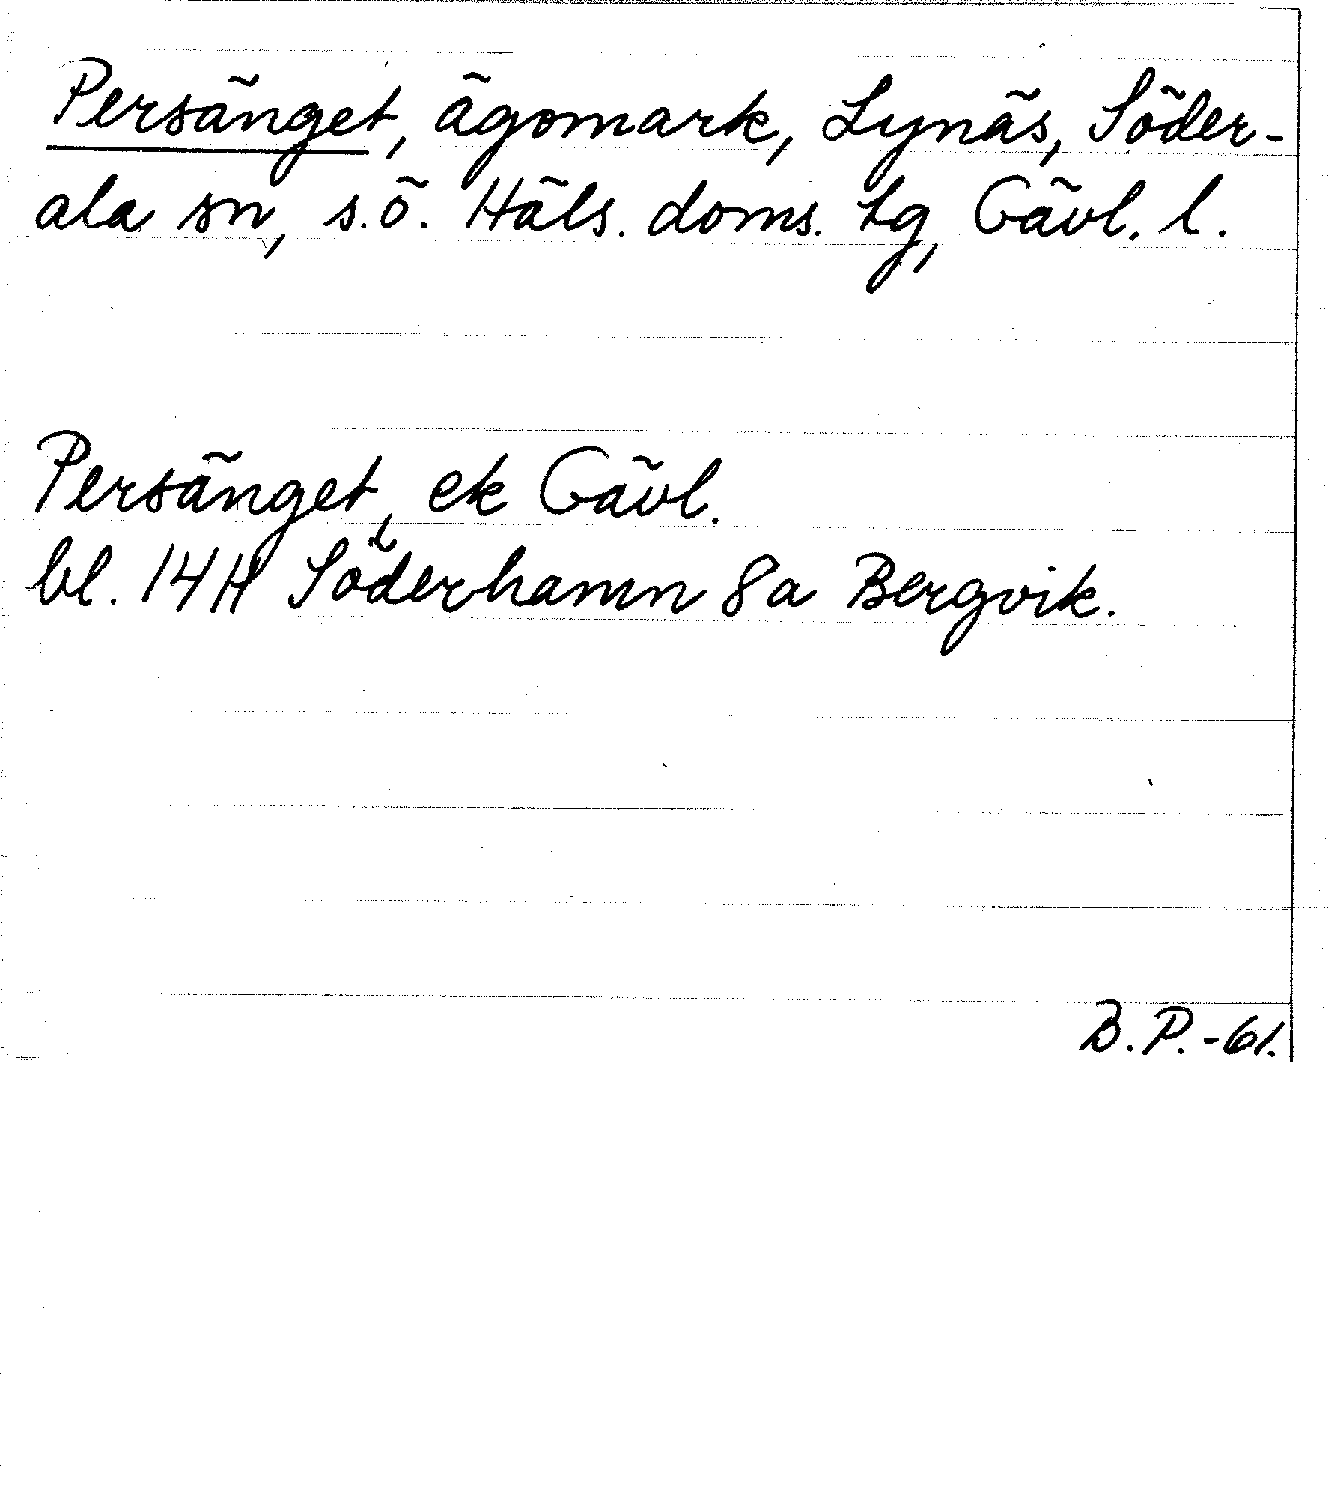 Persänget, ägomark, Lynäs, Söder-
ala sn, s.ö. Häls. doms. Lg, Gävl. l.
Persänget, ek Gävl.
bl. 14H Söderhamn 8a Bergvik.
B.P.-61.